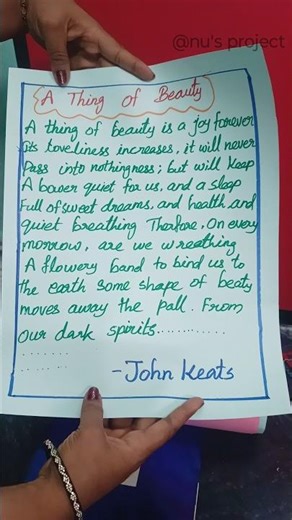 @nu's project
A Thing of Beauty
A thing of beauty is a joy forever
Its loveliness increases, it will never
Pass into nothingness; but will keep
A bower quiet for us, and a sleep
Full of sweet dreams, and health and
quiet breathing Therfore, on every
morrow, are we wreathing
A flowery band to bind us to
the earth some shape of beaty
moves away the pall. From
our dark spirits..............
.......
.........
-John Keats